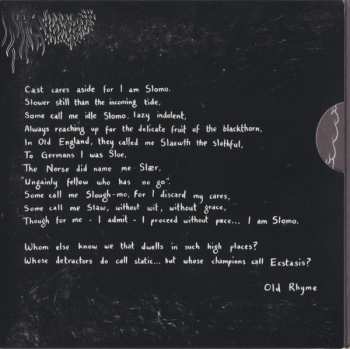 Cast cares aside for I am Slomo.
Slower still than the incoming tide,
Some call me idle Slomo, lazy indolent,
Always reaching up for the delicate fruit of the blackthorn,
In Old England, they called me Slaewth the Slothful,
To Germans I was Sloe,
The Norse did name me Slær,
"Ungainly fellow who has no go".
Some call me Slough-mo, for I discard my cares,
Some call me Slaw, without wit, without grace,
Though for me - I admit - I proceed without pace... I am Slomo.
Whom else know we that dwells in such high places?
Whose detractors do call static... but whose champions call Exstasis?
Old Rhyme